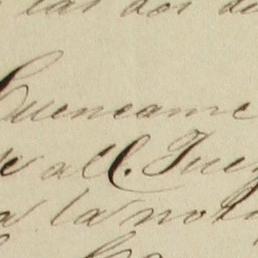 las dos de
Cuencame
al C. Juez
a la nota